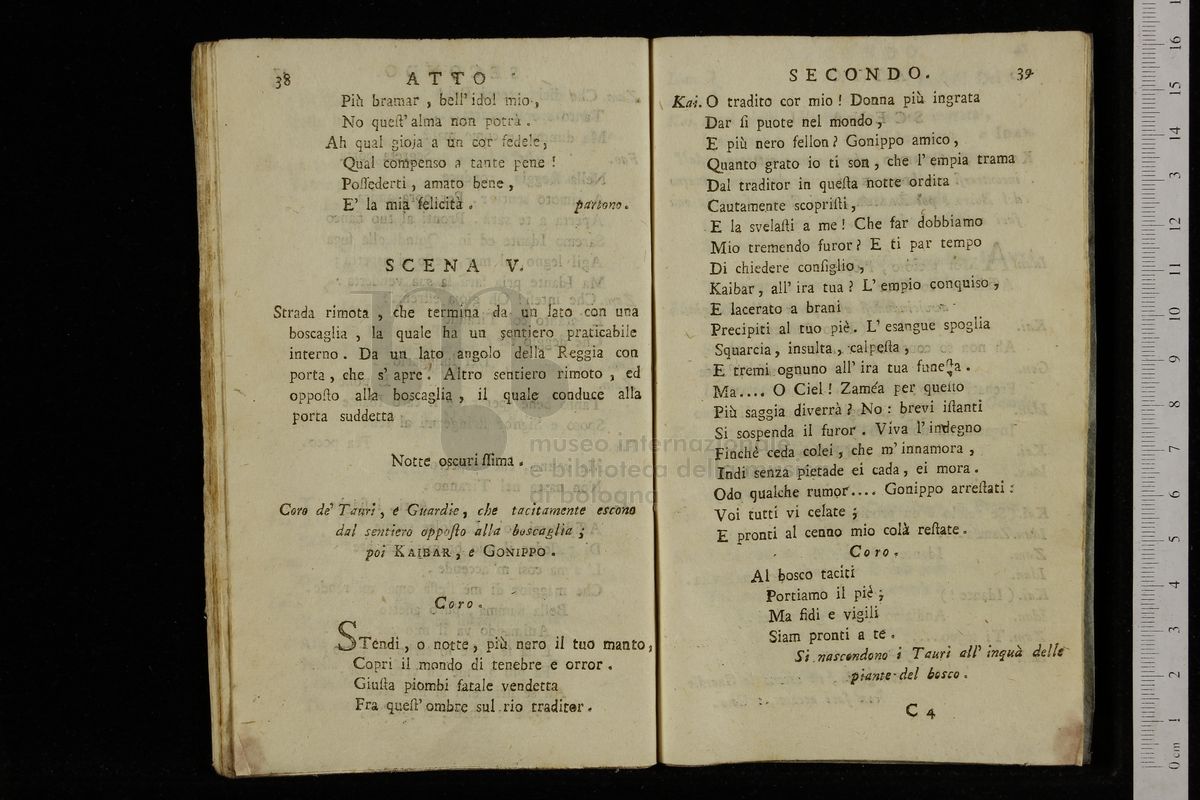 38 ATTO
Più bramar , bell' idol mio ,
No queſt' alma non potrà .
Ah qual gioja a un cor fedele ,
Qual compenso a tante pene !
Poſſederti , amato bene ,
E' la mia felicità . partono .
SCENA V.
Strada rimota , che termina da un lato con una
boscaglia , la quale ha un sentiero praticabile
interno . Da un lato angolo della Reggia con
porta , che s' apre . Altro sentiero rimoto , ed
oppoſto alla boscaglia , il quale conduce alla
porta suddetta
Notte oscuriſſima .
Coro de' Tauri , e Guardie , che tacitamente escono
dal sentiero oppoſto alla boscaglia ;
poi KAIBAR , e GONIPPO .
Coro .
STendi , o notte , più nero il tuo manto ,
Copri il mondo di tenebre e orror .
Giuſta piombi fatale vendetta
Fra queſt' ombre sul rio traditor .
SECONDO. 39
Kai. O tradito cor mio ! Donna più ingrata
Dar ſi puote nel mondo ,
E più nero fellon ? Gonippo amico ,
Quanto grato io ti son , che l' empia trama
Dal traditor in queſta notte ordita
Cautamente scopriſti ,
E la svelaſti a me ! Che far dobbiamo
Mio tremendo furor ? E ti par tempo
Di chiedere conſiglio ,
Kaibar , all' ira tua ? L' empio conquiso ,
E lacerato a brani
Precipiti al tuo piè . L' esangue spoglia
Squarcia , insulta , calpeſta ,
E tremi ognuno all' ira tua funeſta .
Ma .... O Ciel ! Zaméa per queſto
Più saggia diverrà ? No : brevi iſtanti
Si sospenda il furor . Viva l' indegno
Finchè ceda colei , che m' innamora ,
Indi senza pietade ei cada , ei mora .
Odo qualche rumor .... Gonippo arreſtati :
Voi tutti vi celate ;
E pronti al cenno mio colà reſtate .
Coro .
Al bosco taciti
Portiamo il piè ;
Ma fidi e vigili
Siam pronti a te .
Si nascondono i Tauri all' inquà delle
piante del bosco .
C 4
museo internazionale
e biblioteca della musica
di bologna
0 cm 1 2 3 4 5 6 7 8 9 10 11 12 13 14 15 16